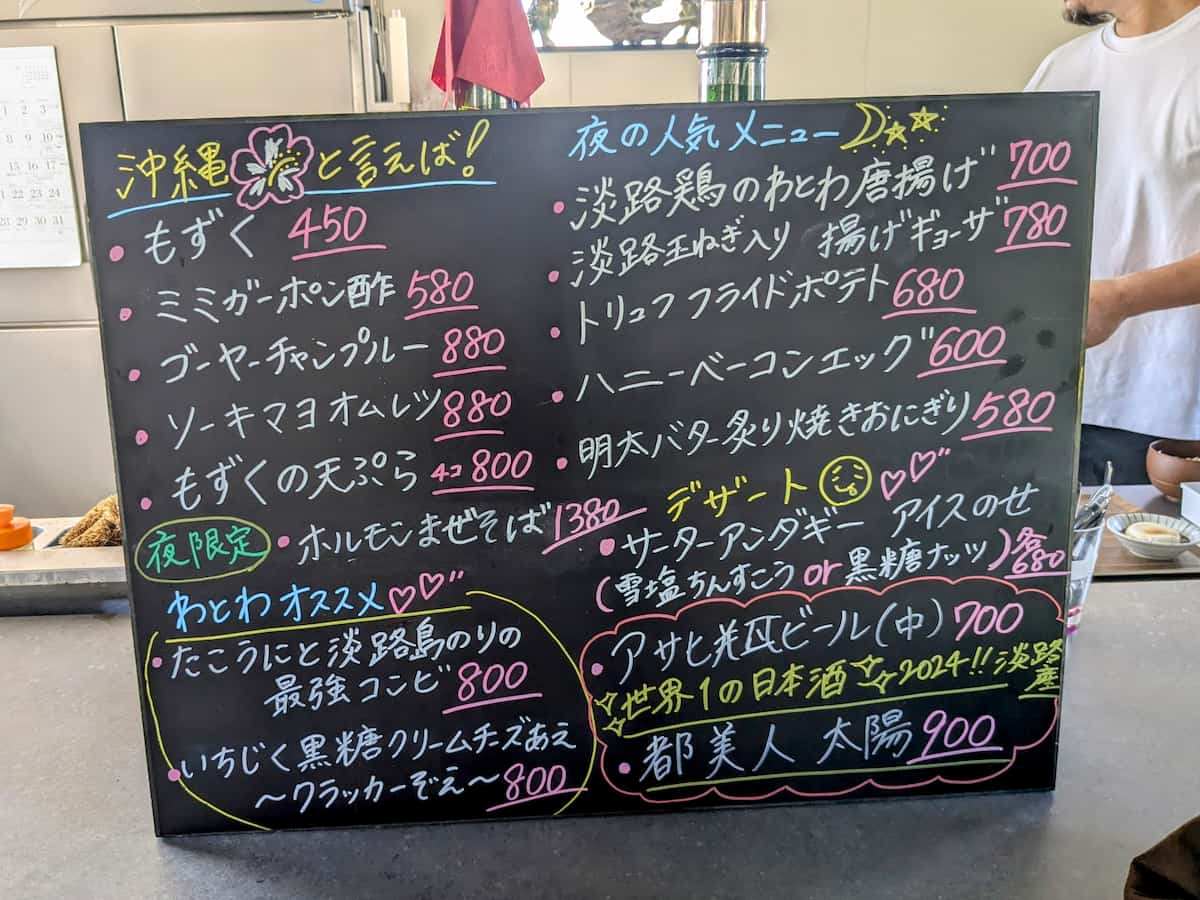 沖縄と言えば!
もずく 450
ミミガーポン酢 580
ゴーヤーチャンプルー 880
ソーキマヨオムレツ 880
もずくの天ぷら 4コ 800
夜限定 ホルモンまぜそば 1380
わとわオススメ
たこうにと淡路島のりの
最強コンビ 800
いちじく黒糖クリームチーズあえ
～クラッカーぞえ～ 800
夜の人気メニュー
淡路鶏のわとわ唐揚げ 700
淡路玉ねぎ入り 揚げギョーザ 780
トリュフフライドポテト 680
ハニーベーコンエッグ 600
明太バター炙り焼きおにぎり 580
デザート
サーターアンダギー アイスのせ
(雪塩ちんすこう or 黒糖ナッツ) 各680
アサヒ 瓶ビール(中) 700
世界1の日本酒 2024!! 淡路産
都美人 太陽 900